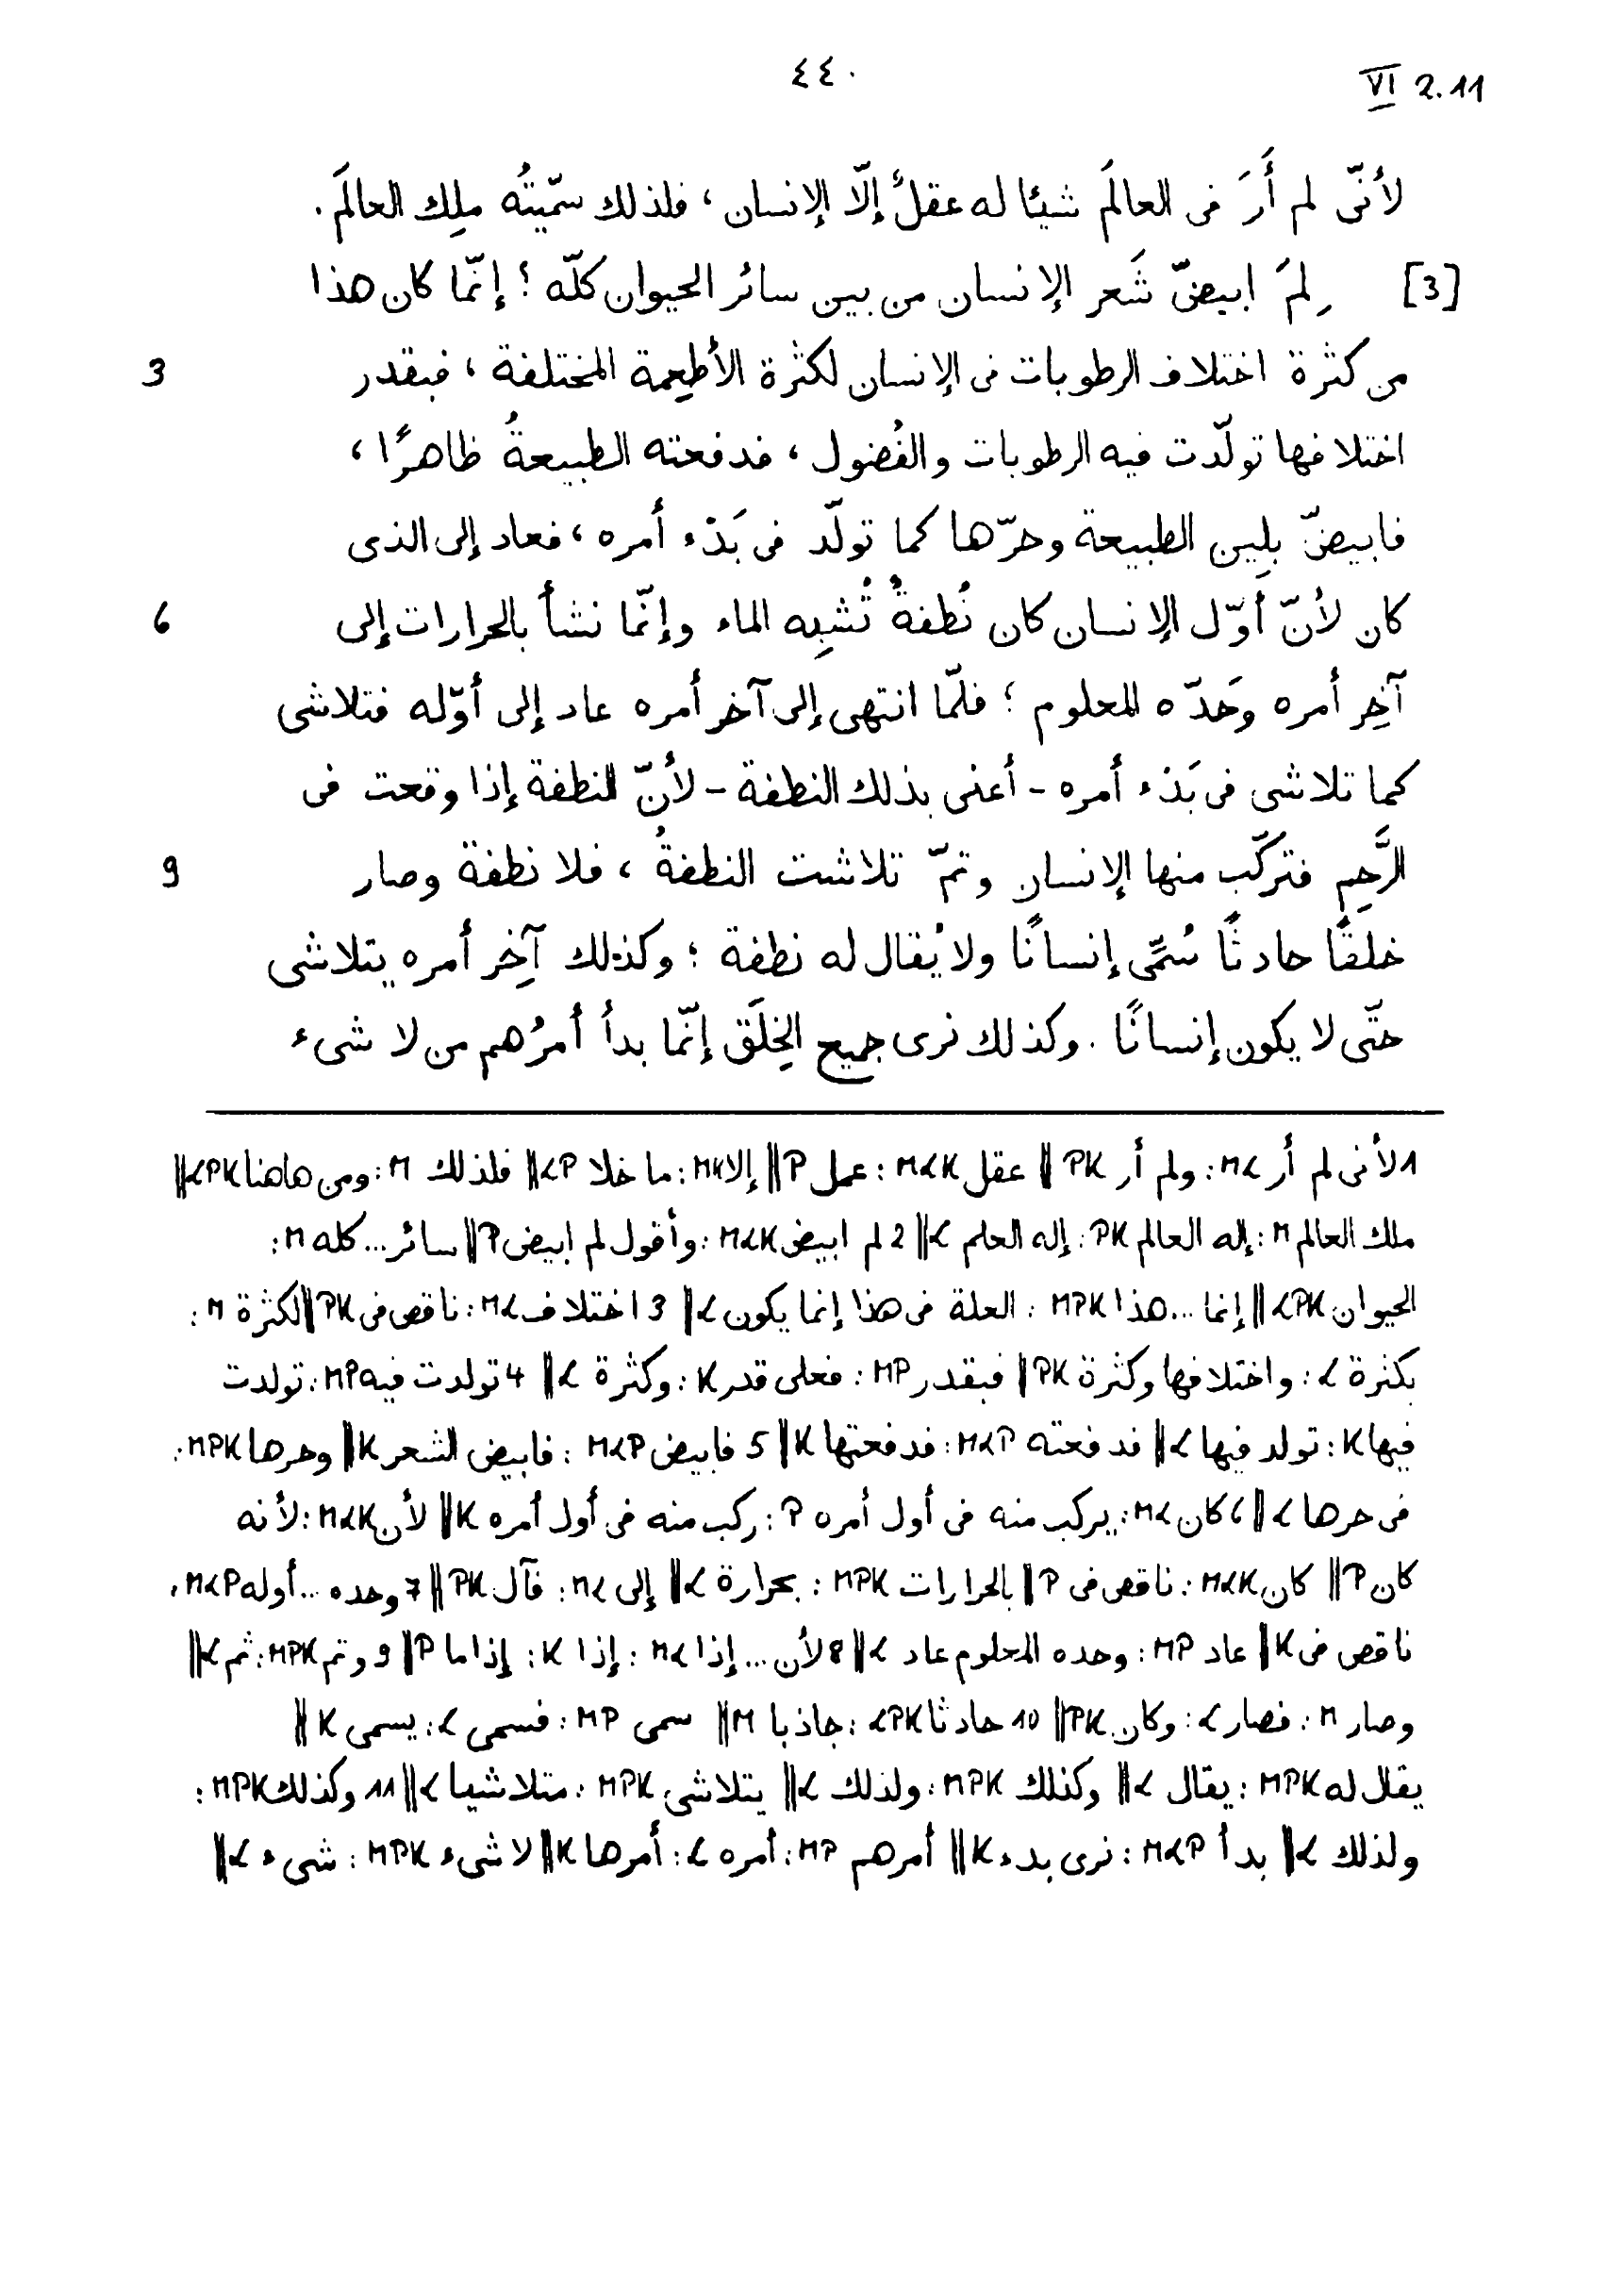 ٤٤٠
VI 2.11
لأنّى لم أَرَ فى العالَم شيئا له عقلٌ إلّا الإنسان، فلذلك سمّيتُه ملِك العالَم.
[3] لِمَ ابيضّ شَعر الإنسان من بين سائر الحيوان كلّه؟ إنّما كان هذا
من كثرة اختلاف الرطوبات فى الإنسان لكثرة الأطعِمة المختلفة، فبقدر 3
اختلافها تولّدت فيه الرطوبات والفُضول، فدفعته الطبيعةُ ظاهرًا،
فابيضّ بلِين الطبيعة وحرّها كما تولّد فى بَدْء أمره، فعاد إلى الذى
كان لأنّ أوّل الإنسان كان نُطفةً تُشبِه الماء وإنّما نشأ بالحرارات إلى 6
آخِر أمره وحَدّه المعلوم؛ فلمّا انتهى إلى آخر أمره عاد إلى أوّله فتلاشى
كما تلاشى فى بَدْء أمره - أعنى بذلك النطفة - لأنّ النطفة إذا وقعت فى
الرَّحِم فتركّب منها الإنسان وتمّ تلاشت النطفةُ، فلا نطفة وصار 9
خلقًا حادثًا سُمِّى إنسانًا ولا يُقال له نطفة؛ وكذلك آخِر أمره يتلاشى
حتّى لا يكون إنسانًا. وكذلك نرى جميع الخِلَق إنّما بدأ أمرُهم من لا شىء
1 لأنى لم أر M<: ولم أر PK || عقل M<K: عمل P || إلا MK: ما خلا <P || فلذلك M: ومن هاهنا <PK ||
ملك العالم M: إله العالم PK: إله العلم < || 2 لم ابيض M<K: وأقول لم ابيض P || سائر... كله M:
الحيوان <PK || إنما... هذا MPK: العلة فى هذا إنما يكون < || 3 اختلاف M<: ناقص فى PK || لكثرة M:
بكثرة <: واختلافها وكثرة PK || فبقدر MP: فعلى قدر K: وكثرة < || 4 تولدت فيه MP: تولدت
فيها K: تولد فيها < || فدفعته M<P: فدفعتها K || 5 فابيض M<P: فابيض الشعر K || وحرها MPK:
فى حرها < || 6 كان M<: يركب منه فى أول أمره P: ركب منه فى أول أمره K || لأن M<K: لأنه
كان P || كان M<K: ناقص فى P || بالحرارات MPK: بحرارة < || إلى M<: فآل PK || 7 وحده... أوله M<P:
ناقص فى K || عاد MP: وحده المعلوم عاد < || 8 لأن... إذا M<: إذا K: إذا ما P || 9 وتم MPK: ثم < ||
وصار M: فصار <: وكان PK || 10 حادثا <PK: جاذبا M || سمى MP: فسمى <: يسمى K ||
يقال له MPK: يقال < || وكذلك MPK: ولذلك < || يتلاشى MPK: متلاشيا < || 11 وكذلك MPK:
ولذلك < || بدأ M<P: نرى بدء K || أمرهم MP: أمره <: أمرها K || لا شىء MPK: شىء < ||